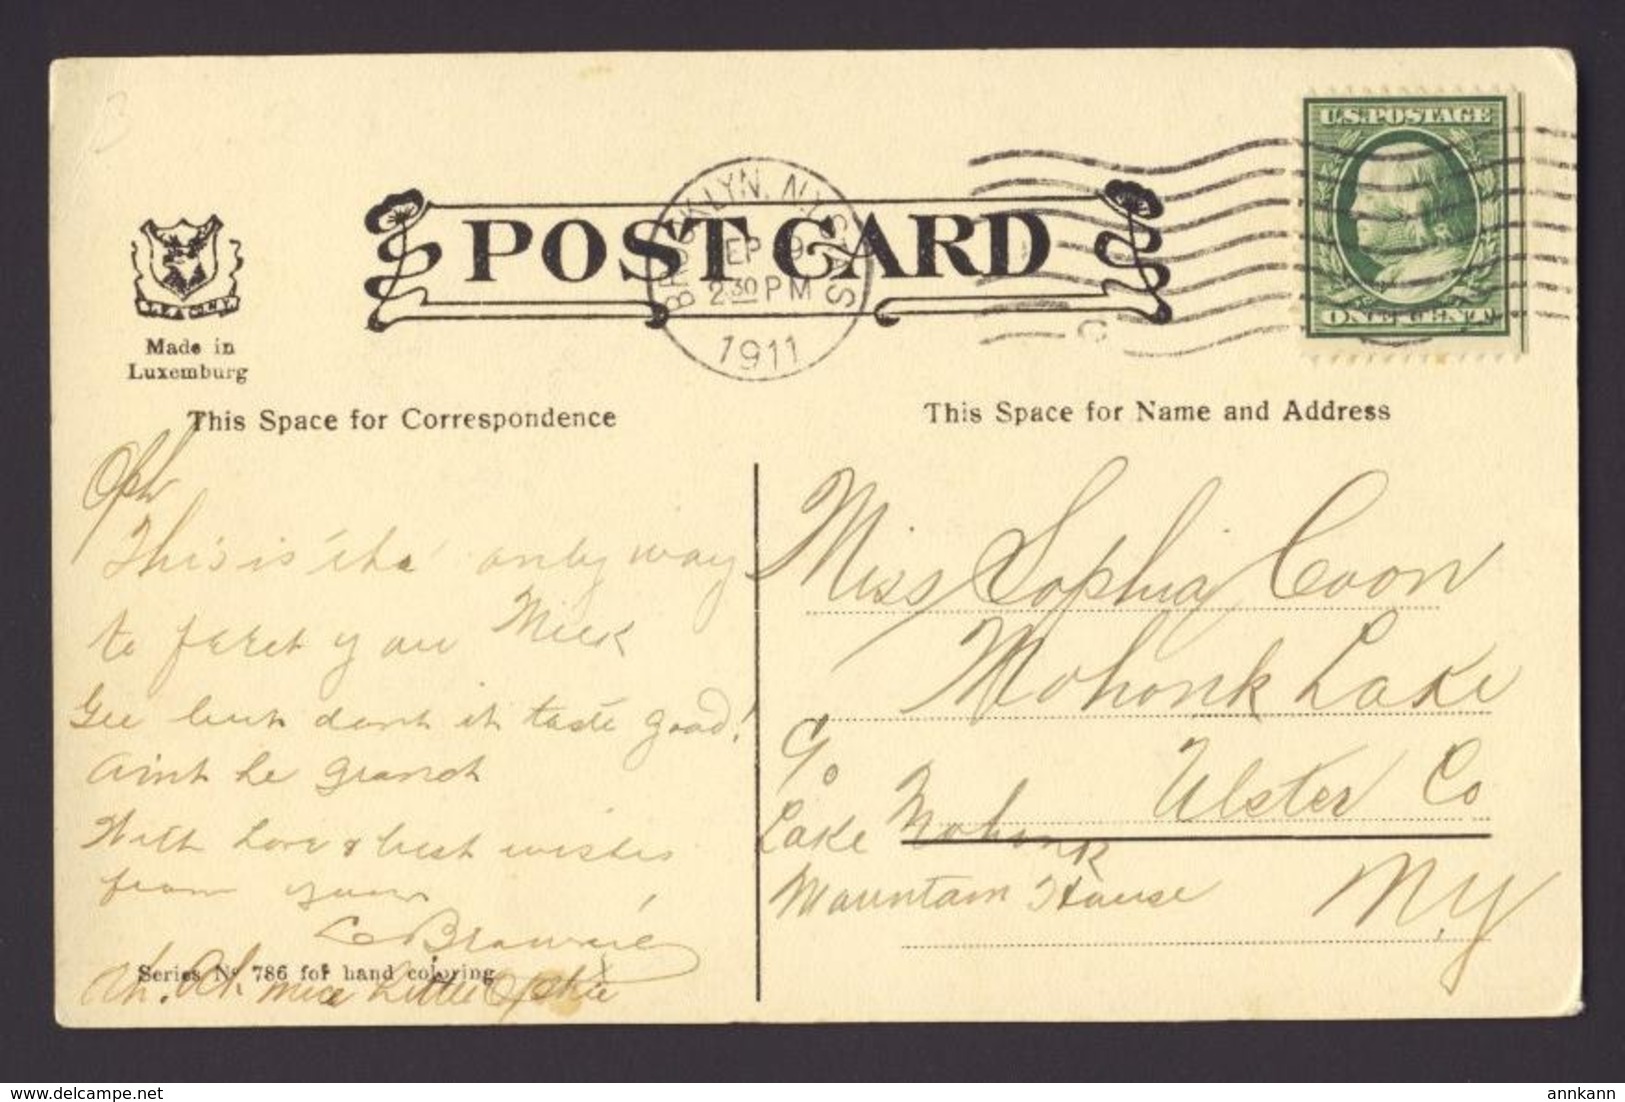 U.S.POSTAGE
ONE CENT
BROOKLYN, N.Y.
SEP 9
2 30 PM
1911
POST CARD
Made in
Luxemburg
This Space for Correspondence
This Space for Name and Address
Oph
This is 'the' only way
to feret you Milk
Gee but dont it taste good!
Aint he grand
With Love & best wishes
from yours
Brownie
Series No 786 for hand coloring
Ah. Oh. nice Little Ophie
Miss Sophia Coon
Mohonk Lake
Ulster Co
N.Y
C/o
Lake Mohonk
Mountain House
delcampe.net
annkann